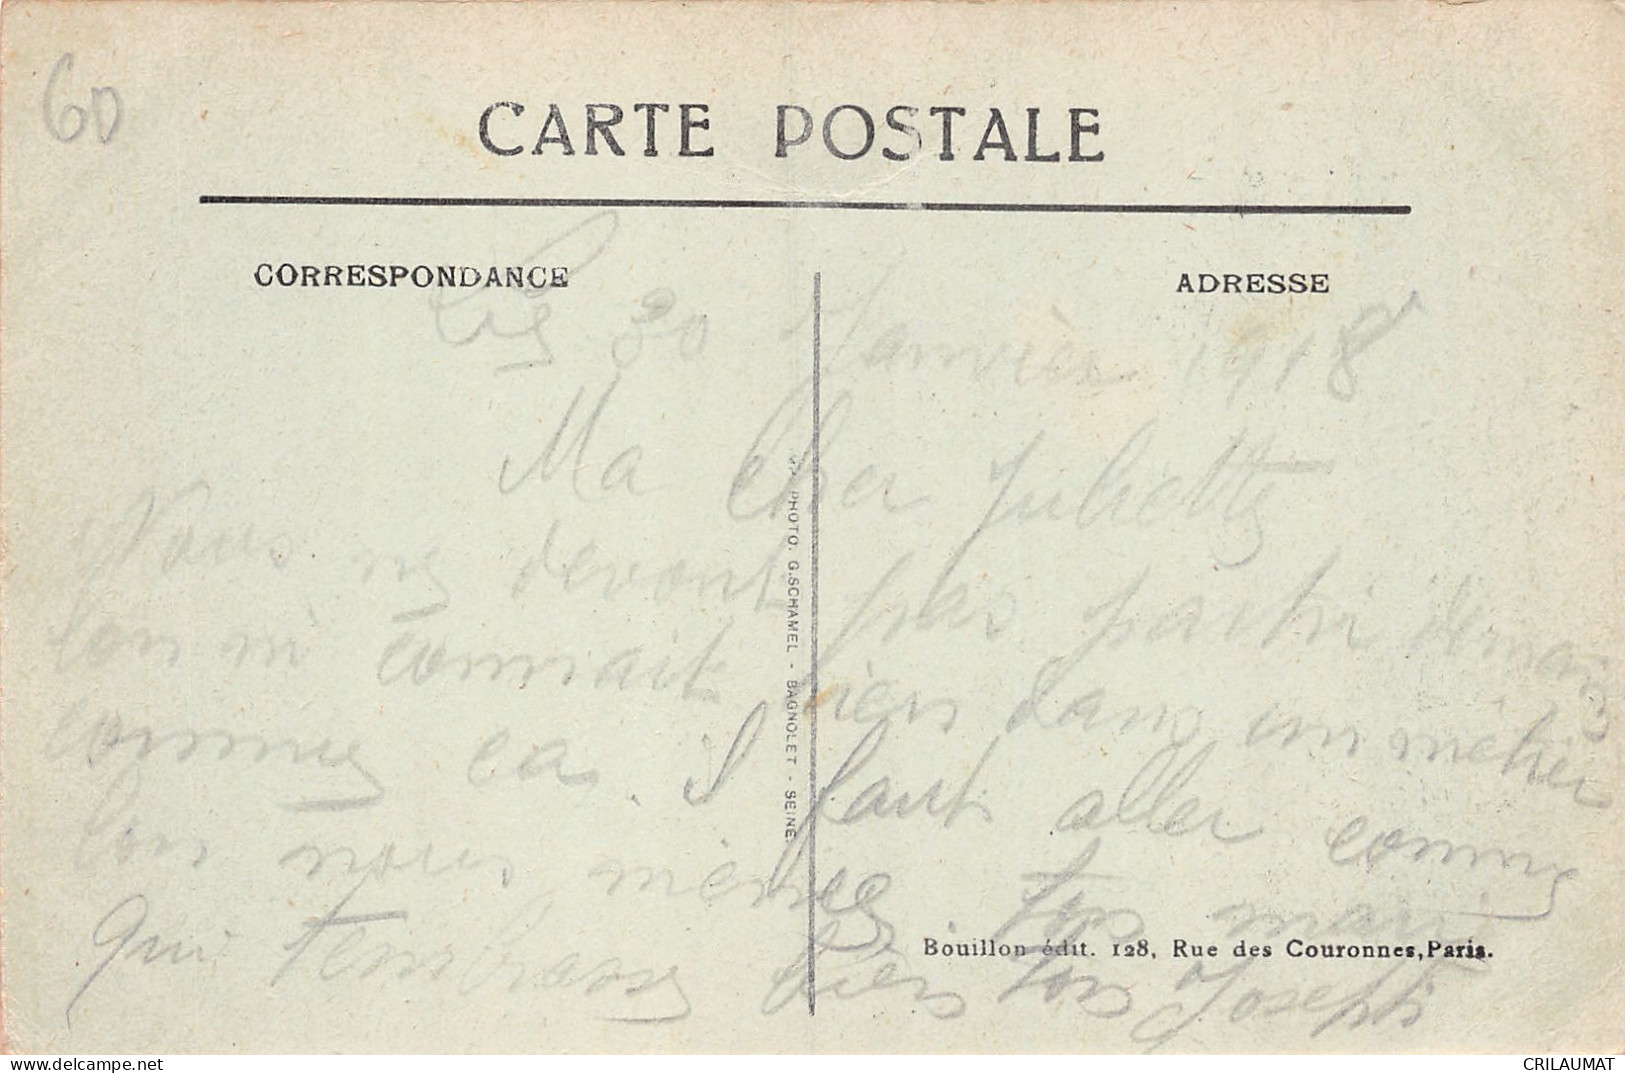 60
CARTE POSTALE
CORRESPONDANCE
ADRESSE
Le 30 Janvier 1918
Ma Cher Juliette
Nous ne devont pas partir demain
lon ni connait rien dans un métier
comme ca. I faut aller comme
lon nous mènes. ton mari
qui tembrasse bien fors Joseph
PHOTO. G. SCHAMEL - BAGNOLET - SEINE.
Bouillon édit. 128, Rue des Couronnes, Paris.
www.delcampe.net
CRILAUMAT